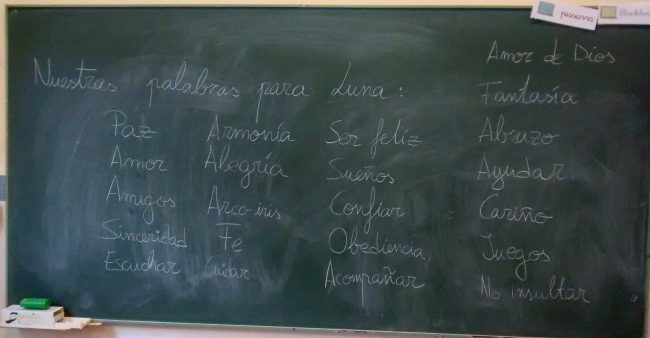 pissarra
Nuestras palabras para Luna:
Paz
Amor
Amigos
Sinceridad
Escuchar
Armonía
Alegría
Arco iris
Fe
Cuidar
Ser feliz
Sueños
Confiar
Obediencia
Acompañar
Amor de Dios
Fantasía
Abrazo
Ayudar
Cariño
Juegos
No insultar